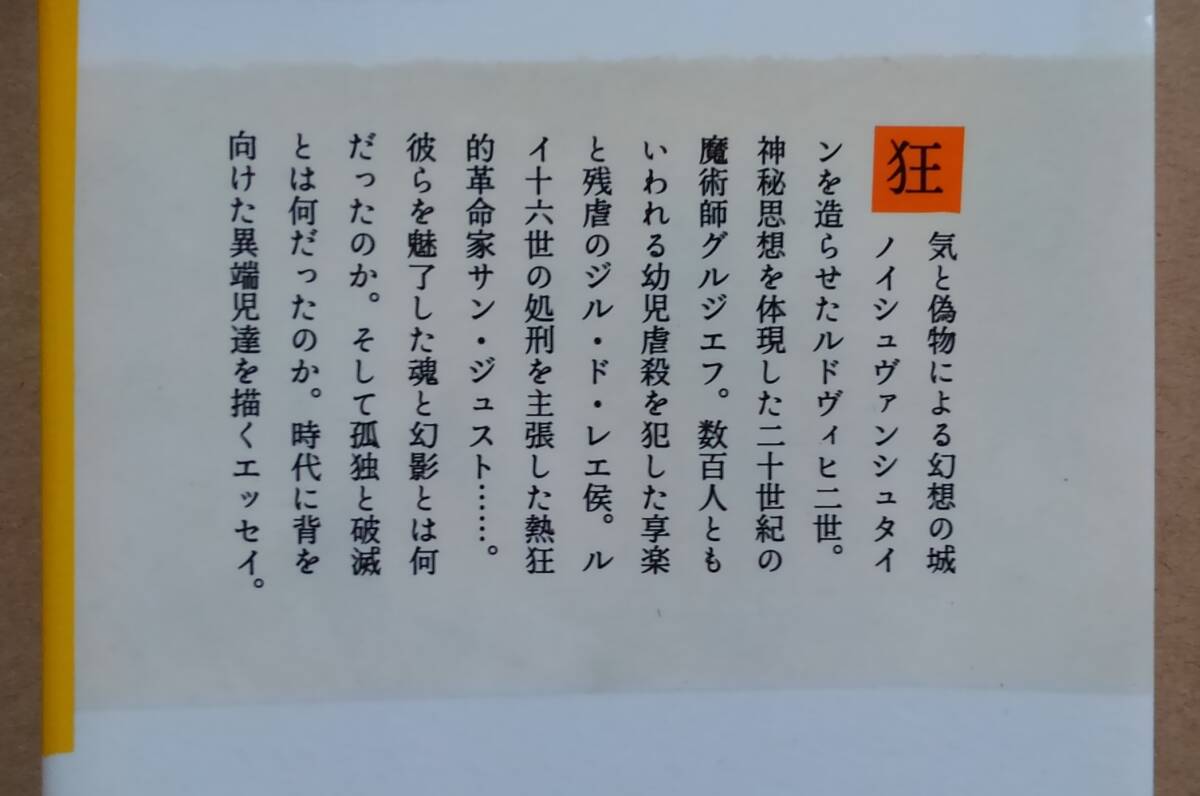 狂気と偽物による幻想の城
ノイシュヴァンシュタイ
ンを造らせたルドヴィヒ二世。
神秘思想を体現した二十世紀の
魔術師グルジエフ。数百人とも
いわれる幼児虐殺を犯した享楽
と残虐のジル・ド・レエ侯。ル
イ十六世の処刑を主張した熱狂
的革命家サン・ジュスト……。
彼らを魅了した魂と幻影とは何
だったのか。そして孤独と破滅
とは何だったのか。時代に背を
向けた異端児達を描くエッセイ。